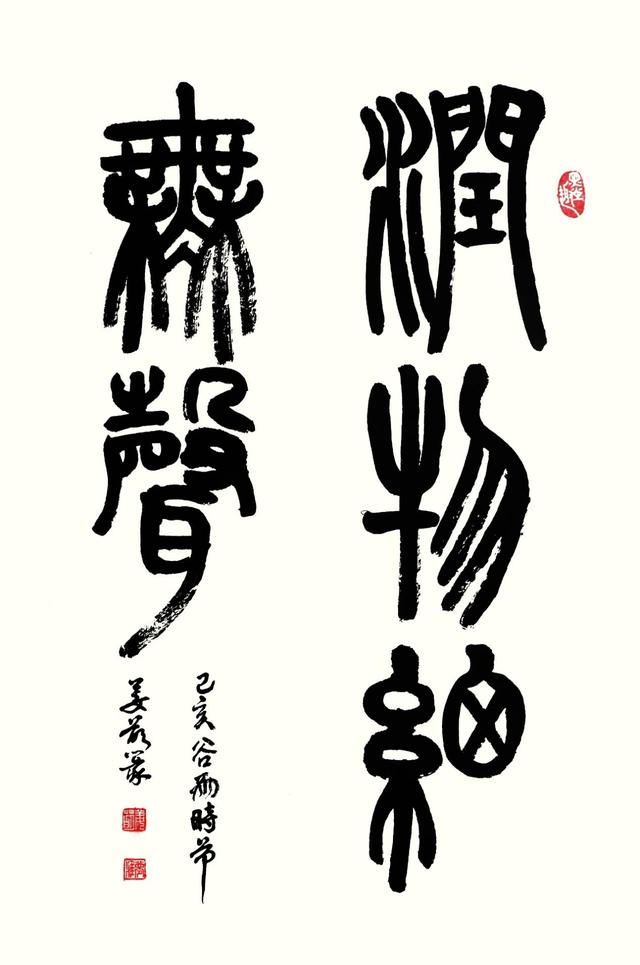 潤物細
無聲
己亥谷雨時节
姜